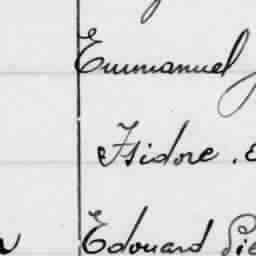 Emmanuel
Isidore.
Edouard